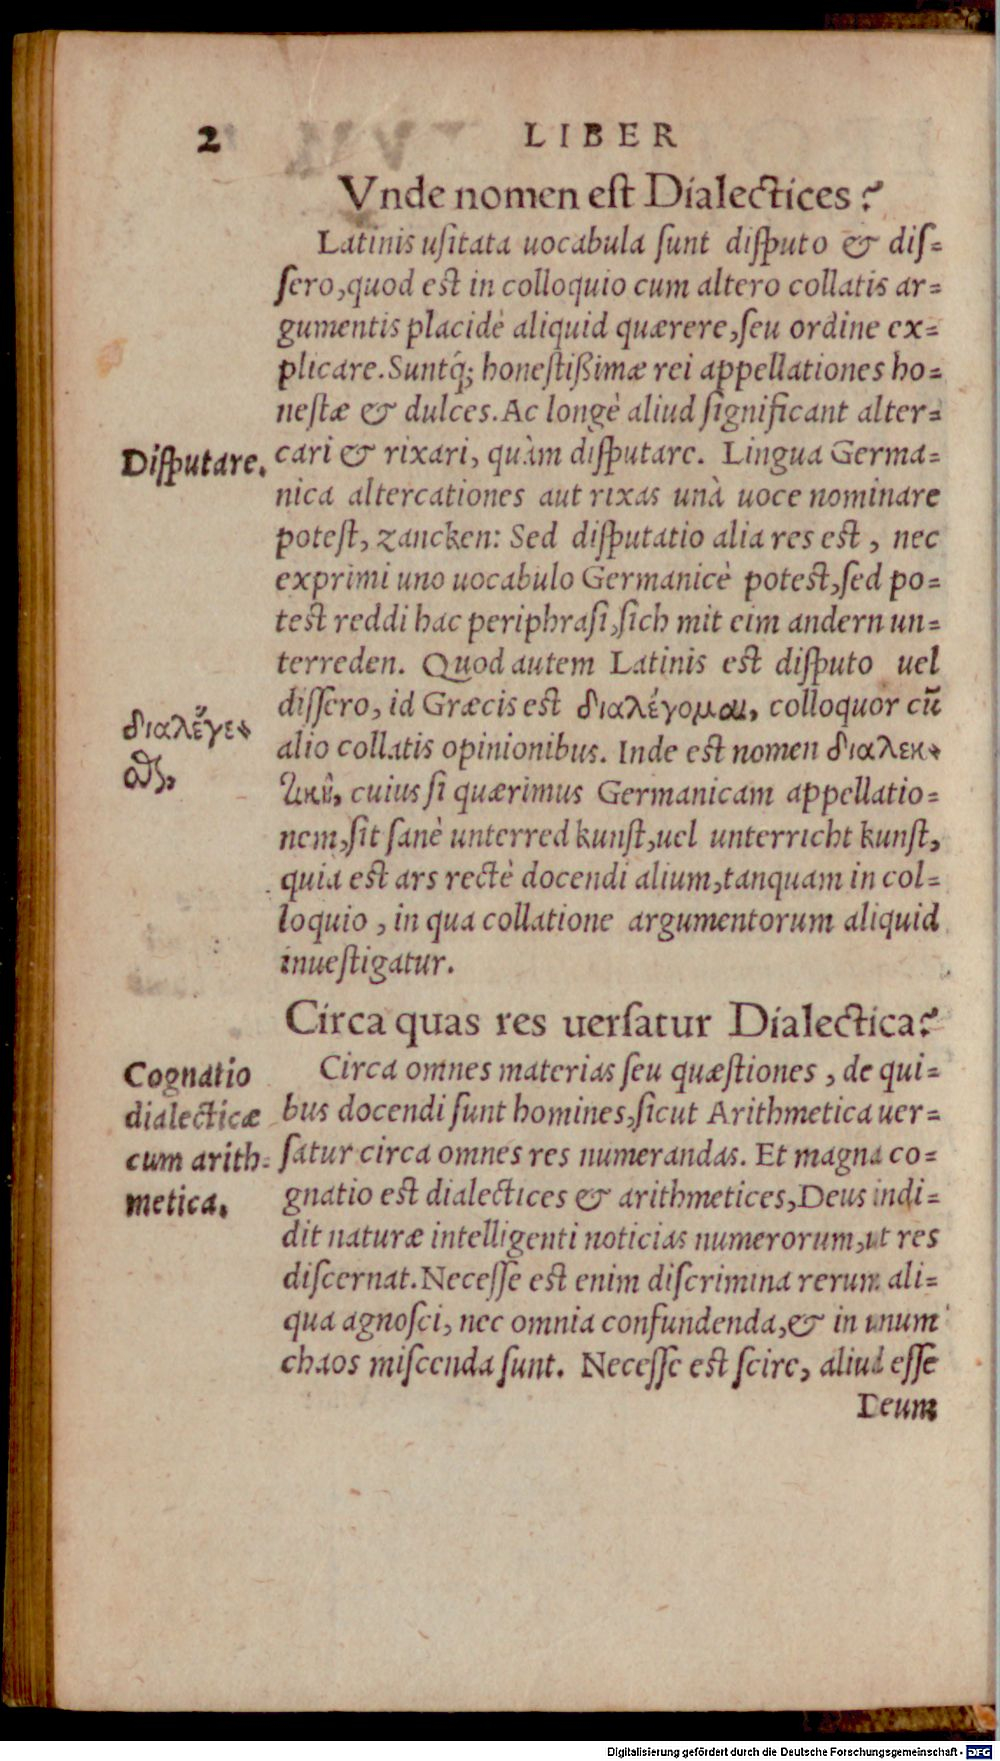 2
LIBER
Vnde nomen est Dialectices?
Latinis usitata uocabula sunt disputo & dis-
sero, quod est in colloquio cum altero collatis ar-
gumentis placidè aliquid quærere, seu ordine ex-
plicare. Suntq́; honestißimæ rei appellationes ho-
nestæ & dulces. Ac longè aliud significant alter-
Disputare.
cari & rixari, quàm disputare. Lingua Germa-
nica altercationes aut rixas unà uoce nominare
potest, zancken: Sed disputatio alia res est, nec
exprimi uno uocabulo Germanicè potest, sed po-
test reddi hac periphrasi, sich mit eim andern un-
terreden. Quod autem Latinis est disputo uel
διαλέγε-
σθαι,
dissero, id Græcis est διαλέγομαι, colloquor cū
alio collatis opinionibus. Inde est nomen διαλεκ-
τικὴ, cuius si quærimus Germanicam appellatio-
nem, sit sanè unterred kunst, uel unterricht kunst,
quia est ars rectè docendi alium, tanquam in col-
loquio, in qua collatione argumentorum aliquid
inuestigatur.
Circa quas res uersatur Dialectica?
Cognatio
dialecticæ
cum arith-
metica.
Circa omnes materias seu quæstiones, de qui-
bus docendi sunt homines, sicut Arithmetica uer-
satur circa omnes res numerandas. Et magna co-
gnatio est dialectices & arithmetices, Deus indi-
dit naturæ intelligenti noticias numerorum, ut res
discernat. Necesse est enim discrimina rerum ali-
qua agnosci, nec omnia confundenda, & in unum
chaos miscenda sunt. Necesse est scire, aliud esse
Deum
Digitalisierung gefördert durch die Deutsche Forschungsgemeinschaft - DFG